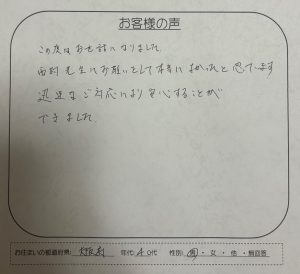 お客様の声
この度はお世話になりました。
西村先生にお願いをして本当によかったと思っています
迅速なご対応により安心することが
できました。
お住まいの都道府県: 大阪府 年代: 40代 性別: 男・女・他・無回答